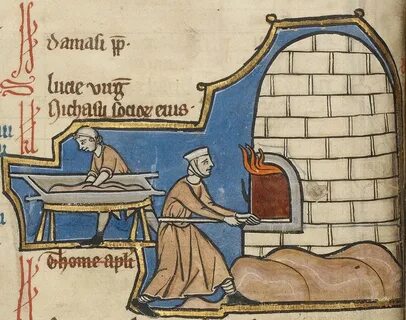 damasi pp̄.
lucie uirg̃
Nichasii socior̄ eius.
Thome apl̃i